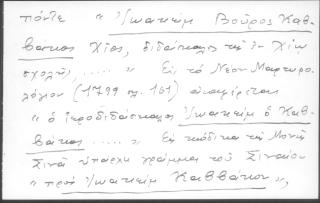 πόντε " Ἰωακεὶμ Βοῦρος Καβ-
βάκος Χῖος, διδάσκαλος τῆς ἐν Χίῳ
σχολῆς, ..... " Εἰς τὸ Νέον Μαρτυρο-
λόγιον (1799 σελ. 161) ἀναφέρεται
" ὁ ἱεροδιδάσκαλος Ἰωακεὶμ ὁ Καβ-
βάκος ..... " Εἰς κώδικα τῆς Μονῆς
Σινᾶ ὑπάρχει γράμμα τοῦ Σιναίου
" πρὸς Ἰωακεὶμ Καββάκον",